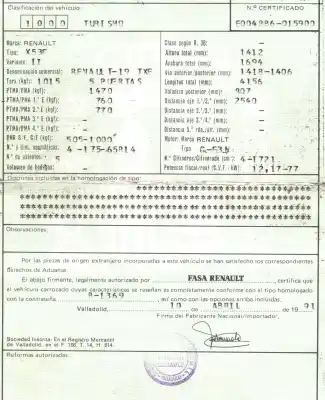 Clasificación del vehículo:
Nº CERTIFICADO
1 0 0 0 TURISMO
E004886-015900
Marca: RENAULT
Clase según R. 3B: —
Tipo: X53E
Altura total (mm): 1412
Variante: II
Anchura total (mm): 1694
Denominación comercial: RENAULT-19 TXE
Vía anterior/posterior (mm): 1418-1406
Tara (kg): 1015 5 PUERTAS
Longitud total (mm): 4156
PTMA/PMA (kg): 1470
Voladizo posterior (mm): 907
PTMA/PMA 1.º E (kg): 760
Distancia eje 1.º/2.º (mm): 2540
PTMA/PMA 2.º E (kg): 770
Distancia eje 2.º/3.º (mm): —
PTMA/PMA 3.º E (kg): —
PTMA/PMA 4.º E (kg): —
505-1000
Marca: Motor: RENAULT
N.º y dim. neumáticos: 4 -175-65R14
Tipo
N.º de asientos:
N.º Cilindros/Cilindrada (cm³): 4-1721
Volumen de bodegas: —
Potencia fiscal/real (C.V.F - kW): 12,17-77
Opciones incluidas en la homologación de tipo:
Observaciones:
Por las piezas de origen extranjero incorporadas a este vehículo se han satisfecho los correspondientes
derechos de Aduana.
El abajo firmante, legalmente autorizado por FASA RENAULT, certifica que
el vehículo carrozado cuyas características se reseñan es completamente conforme con el tipo homologado
con la contraseña B-1369, así como con las opciones arriba incluidas.
Valladolid, 10 de ABRIL de 1991
Firma del Fabricante Nacional/Importador.
Sociedad Inscrita: En el Registro Mercantil
de Valladolid, en el F. 168, T. 14, H. 914.
Reformas autorizadas: